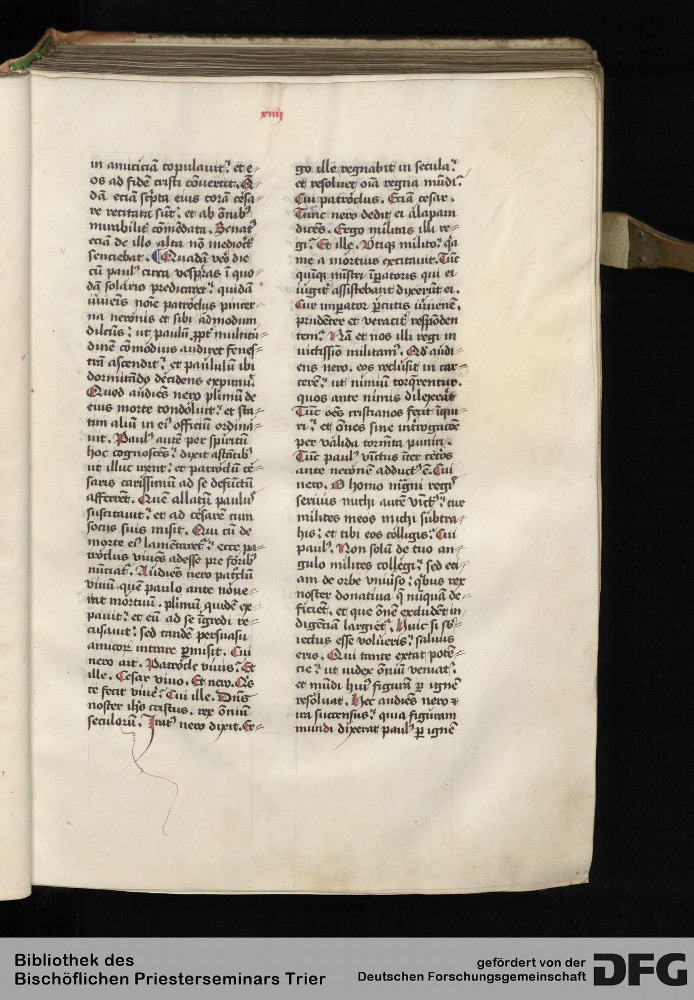 xiiij
in amiciciā copulauitᷣ. et e⸗
os ad fidē cristi cōuertit. Q̄
dā eciā sc̄pta eius corā cesa⸗
re recitata sūt. et ab ōnibꝰ
mirabilitᷣ cōmēdata. Senatꝰ
eciā de illo alta nō mediocrit̄
senciebat. Quadā vero die
cū paulꝰ circa vesp̄as ī quo⸗
dā solario predicaret. quidā
iuuenis noīe patroclus pincer⸗
na neronis et sibi admodum
dilcūs. ut paulū ꝓpt̄ multitu⸗
dinē cōmodius audiret fenes⸗
trā ascendit. et paululū ibi
dormitādo decidens expirauit.
Quod audiēs nero plimū de
eius morte condoluit. et sta⸗
tim aliū in eiꝰ officiū ordina⸗
uit. Paulꝰ autē per spiritū
hoc cognoscēs. dixit astātibꝰ
ut illuc irent. et patroclū ce⸗
saris carissimū ad se defūctū
afferrēt. Quē allatū paulus
suscitauit. et ad cesarē cum
socijs suis misit. Qui cū de
morte eiꝰ lamētaretᷣ. ecce pa⸗
troclus viuēs adesse pre foribꝰ
nūciatᷣ. Audiēs nero pat̄clū
viuū quē paulo ante noue⸗
rat mortuū. plimū quidē ex⸗
pauit. et eū ad se īgredi re⸗
cusauit. sed tandē persuasu
amicorꝝ intrare ꝑmisit. Cui
nero ait. Patrocle viuis. Et
ille. Cesar viuo. Et nero. Q's
te fecit viuē. Cui ille. Dn̄s
noster ihs cristus. rex ōniū
seculorū. Iratꝰ nero dixit. Er⸗
go ille regnabit in secula.
et resoluet oīa regna mūdi.
Cui patroclus. Eciā cesar.
Tunc nero dedit ei alapam
dicēs. Ergo militas illi re⸗
gi. Et ille. Vtiqꝫ milito. q̄a
me a mortuis excitauit. Tūc
quīqꝫ mīstri īpatoris qui ei
iugitᷣ assistebant dixerūt ei.
Cur imꝑator ꝑcutis iuuenē.
prudēter et veracitᷣ respōden
tem. Nā et nos illi regi in
uictissīo militamꝰ. Qd audi⸗
ens nero. eos reclusit in car⸗
cerē. ut nimiū torq̄rentur.
quos ante nimis dilexerat
Tūc oēs cristianos fecit īqui⸗
ri. et ōnes sine int̄rogacōe
per valida torm̄ta puniri.
Tūc paulꝰ vīctus īter cet̄os
ante neronē adductꝰ ē. Cui
nero. O homo mḡni regꝭ
seruus michi autē vīctꝰ. cur
milites meos michi subtra⸗
his. et tibi eos colligis. Cui
paulꝰ. Non solū de tuo an⸗
gulo milites collegi. sed eci⸗
am de orbe vniuso. q̄bus rex
noster donatiua q̄ nūquā de⸗
ficiēt. et que ōnē excludēt in⸗
digētiā largietᷣ. Huic si sb⸗
iectus esse volueris. saluus
eris. Qui tante extat potē⸗
cie. ut iudex ōniū veniat.
et mūdi huiꝰ figurā ꝑ ignē
resoluat. Hec audiēs nero ⁊
ira succensus. quia figuram
mundi dixerat paulꝰ ꝑ ignē
Bibliothek des
Bischöflichen Priesterseminars Trier
gefördert von der
Deutschen Forschungsgemeinschaft
DFG